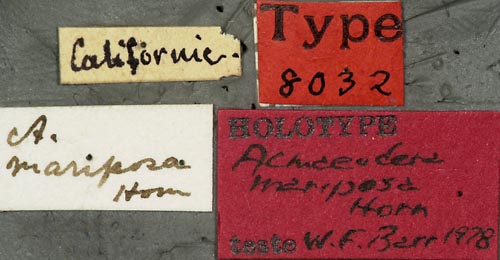 Californie.
Type
8032
A.
mariposa
Horn
HOLOTYPE
Acmaeodera
mariposa
Horn
teste W. F. Barr 1978